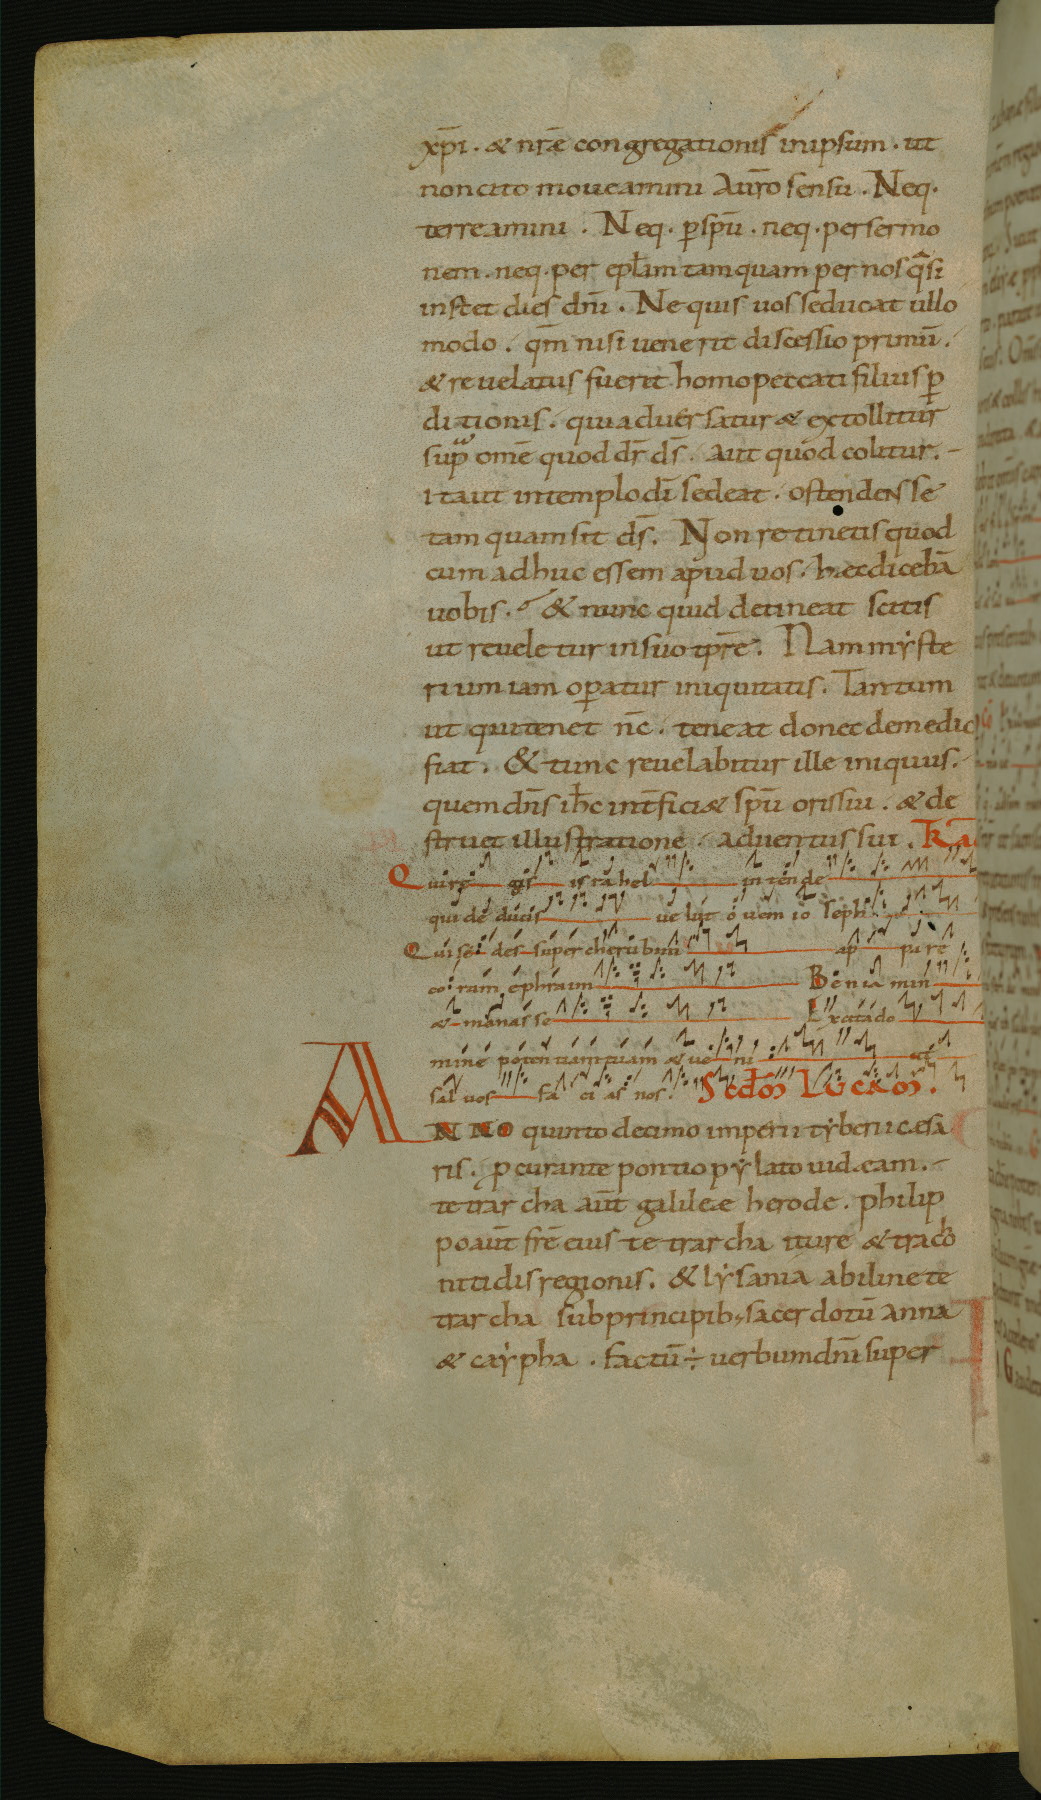 xp̄i . & nr̄æ congregationis inipsum . ut
non cito moueamini Aur̄o sensu . Neq.
terreamini . Neq . p̱spū . neq . per sermo
nem . neq . per epl̄am tamquam per nos q̄si
instet dies dn̄i . Ne quis uos seducat ullo
modo . qm̄ nisi uenerit discessio primū .
& reuelatus fuerit homo peccati filius p̱
ditionis . qui aduersatur & extollitur
sup̱ om̄e quod dr̄ ds̄ . aut quod colitur .
ita ut intemplo dī sedeat . ostendens se
tam quam sit ds̄ . Non retinetis quod
cum adhuc essem apud uos . hæc dicebā
uobis . & nunc quid detineat scitis
ut reueletur insuo tp̄re . Nam mẏste
rium iam op̱atur iniquitatis . Tantum
ut qui tenet nc̄ . teneat donec demedio
fiat . & tunc reuelabitur ille iniquus .
quem dn̄s ih̄c int̄ficiæ spū oris sui . & de
struet illustratione aduentus sui .
Qui regis israhel intende
qui deducis uelut ouem ioseph
Qui sedes super cherubim appare
coram ephraim Beniamin
& manasse Excita do
mine potentiam tuam & ueni ut
saluos facias nos . Scdm̄ Lucam .
ANNO quinto decimo imperii tẏberii cæsa
ris . p̱curante pontio pẏlato iudæam .
tetrarcha aūt galileæ herode . philip
po aūt fr̄e eius tetrarcha iture & traco
nitidis regionis . & lẏsania abiline te
trarcha sub principib; sacerdotū anna
& caẏpha . factū ÷ uerbum dn̄i super